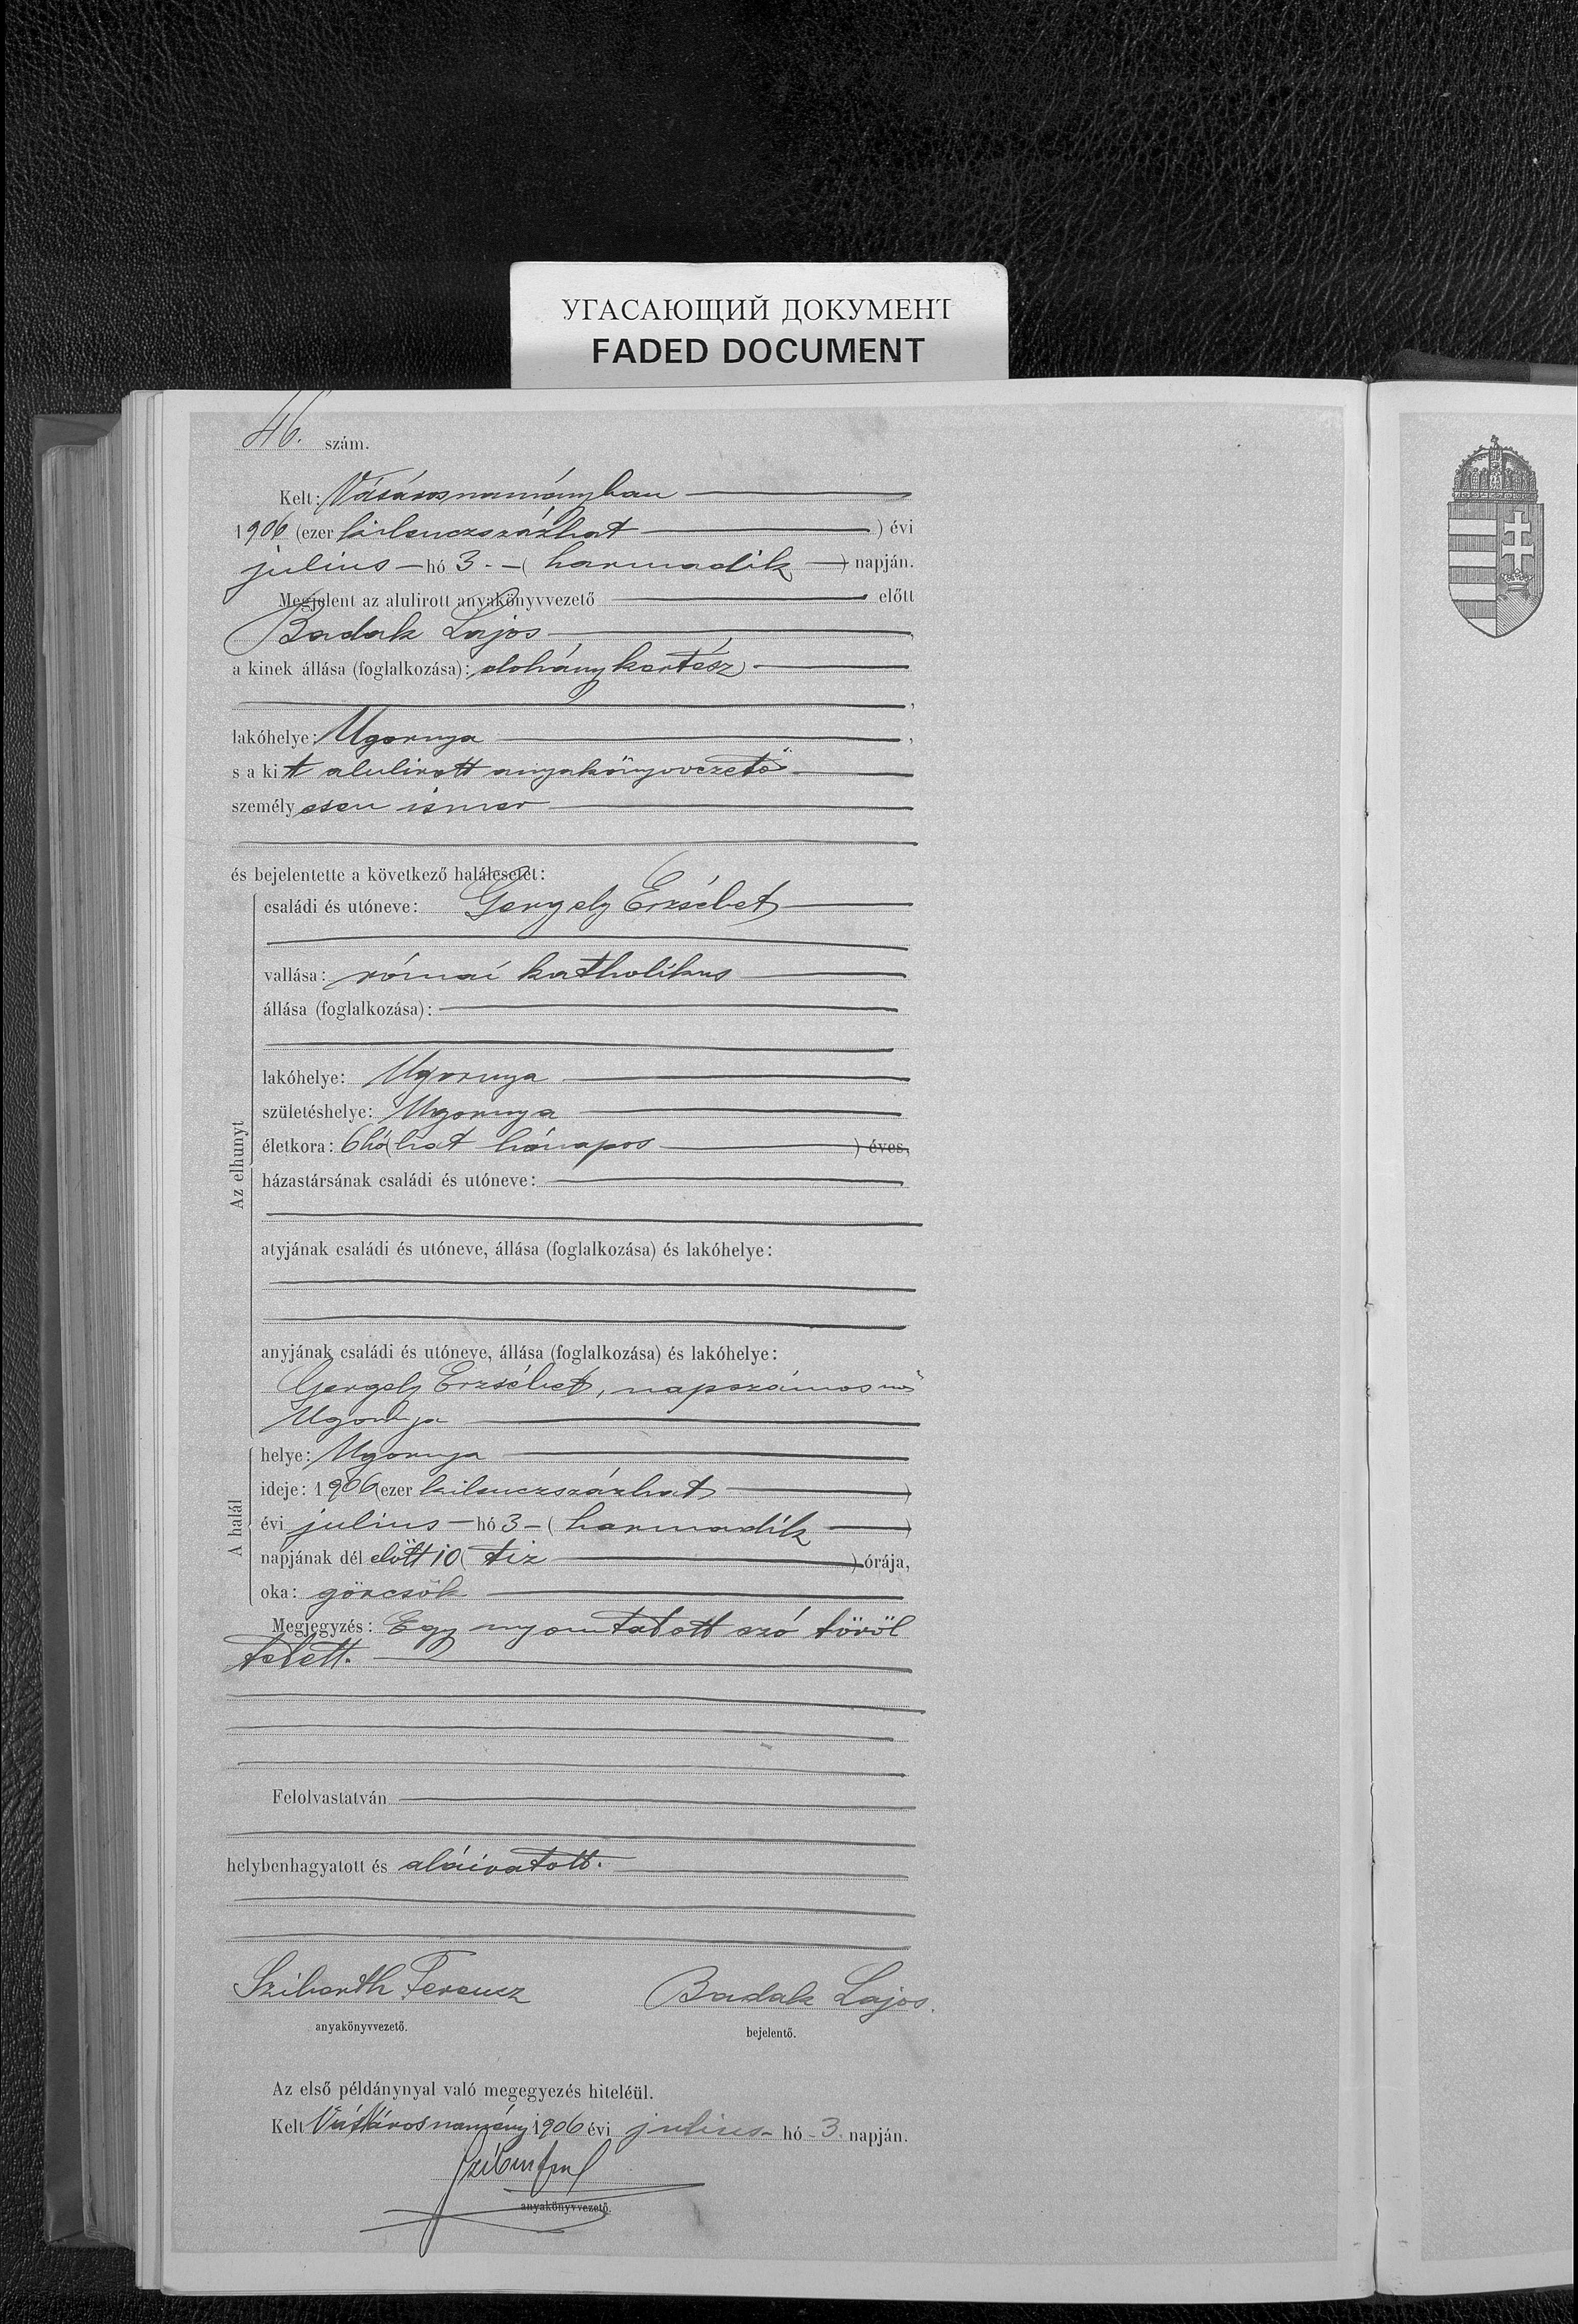 УГАСАЮЩИЙ ДОКУМЕНТ
FADED DOCUMENT
46. szám.
Kelt: Vásárosnaményban
1906 (ezer kilenczszázhat ) évi
julius hó 3. ( harmadik ) napján.
Megjelent az alulirott anyakönyvvezető előtt
Badak Lajos
a kinek állása (foglalkozása): dohánykertész
lakóhelye: Ugornya
s a kit alulirott anyakönyvvezető
személyesen ismer
és bejelentette a következő halálesetet:
Az elhunyt
családi és utóneve: Gergely Erzsébet
vallása: római katholikus
állása (foglalkozása):
lakóhelye: Ugornya
születéshelye: Ugornya
életkora: 6 hó (hat hónapos ) éves,
házastársának családi és utóneve:
atyjának családi és utóneve, állása (foglalkozása) és lakóhelye:
anyjának családi és utóneve, állása (foglalkozása) és lakóhelye:
Gergely Erzsébet, napszámosnő
Ugornya
A halál
helye: Ugornya
ideje: 1906 (ezer kilenczszázhat )
évi julius hó 3 ( harmadik )
napjának dél előtt 10 ( tiz ) órája,
oka: görcsök
Megjegyzés: Egy nyomtatott szó töröl
tetett.
Felolvastatván
helybenhagyatott és aláiratott.
Ferencz Badak Lajos.
anyakönyvvezető. bejelentő.
Az első példánynyal való megegyezés hiteléül.
Kelt Vásárosnamény 1906 évi julius hó 3. napján.
anyakönyvvezető.